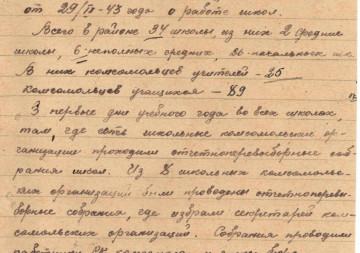 от 29/IX-43 года о работе школ.
Всего в районе 34 школы из них 2 средние
школы, 6 неполных средних, 26 начальных
В них комсомольцев учителей - 25
комсомольцев учащихся - 89
В первые дни учебного года во всех школах,
там, где есть школьные комсомольские ор-
ганизации проходили отчетноперевыборные соб-
рания школ. Из 8 школьных комсомольс-
ких организаций были проведены отчетноперевы-
борные собрания, где избрали секретарей ком-
сомольских организаций. Собрания проводили
работники РК комсомола